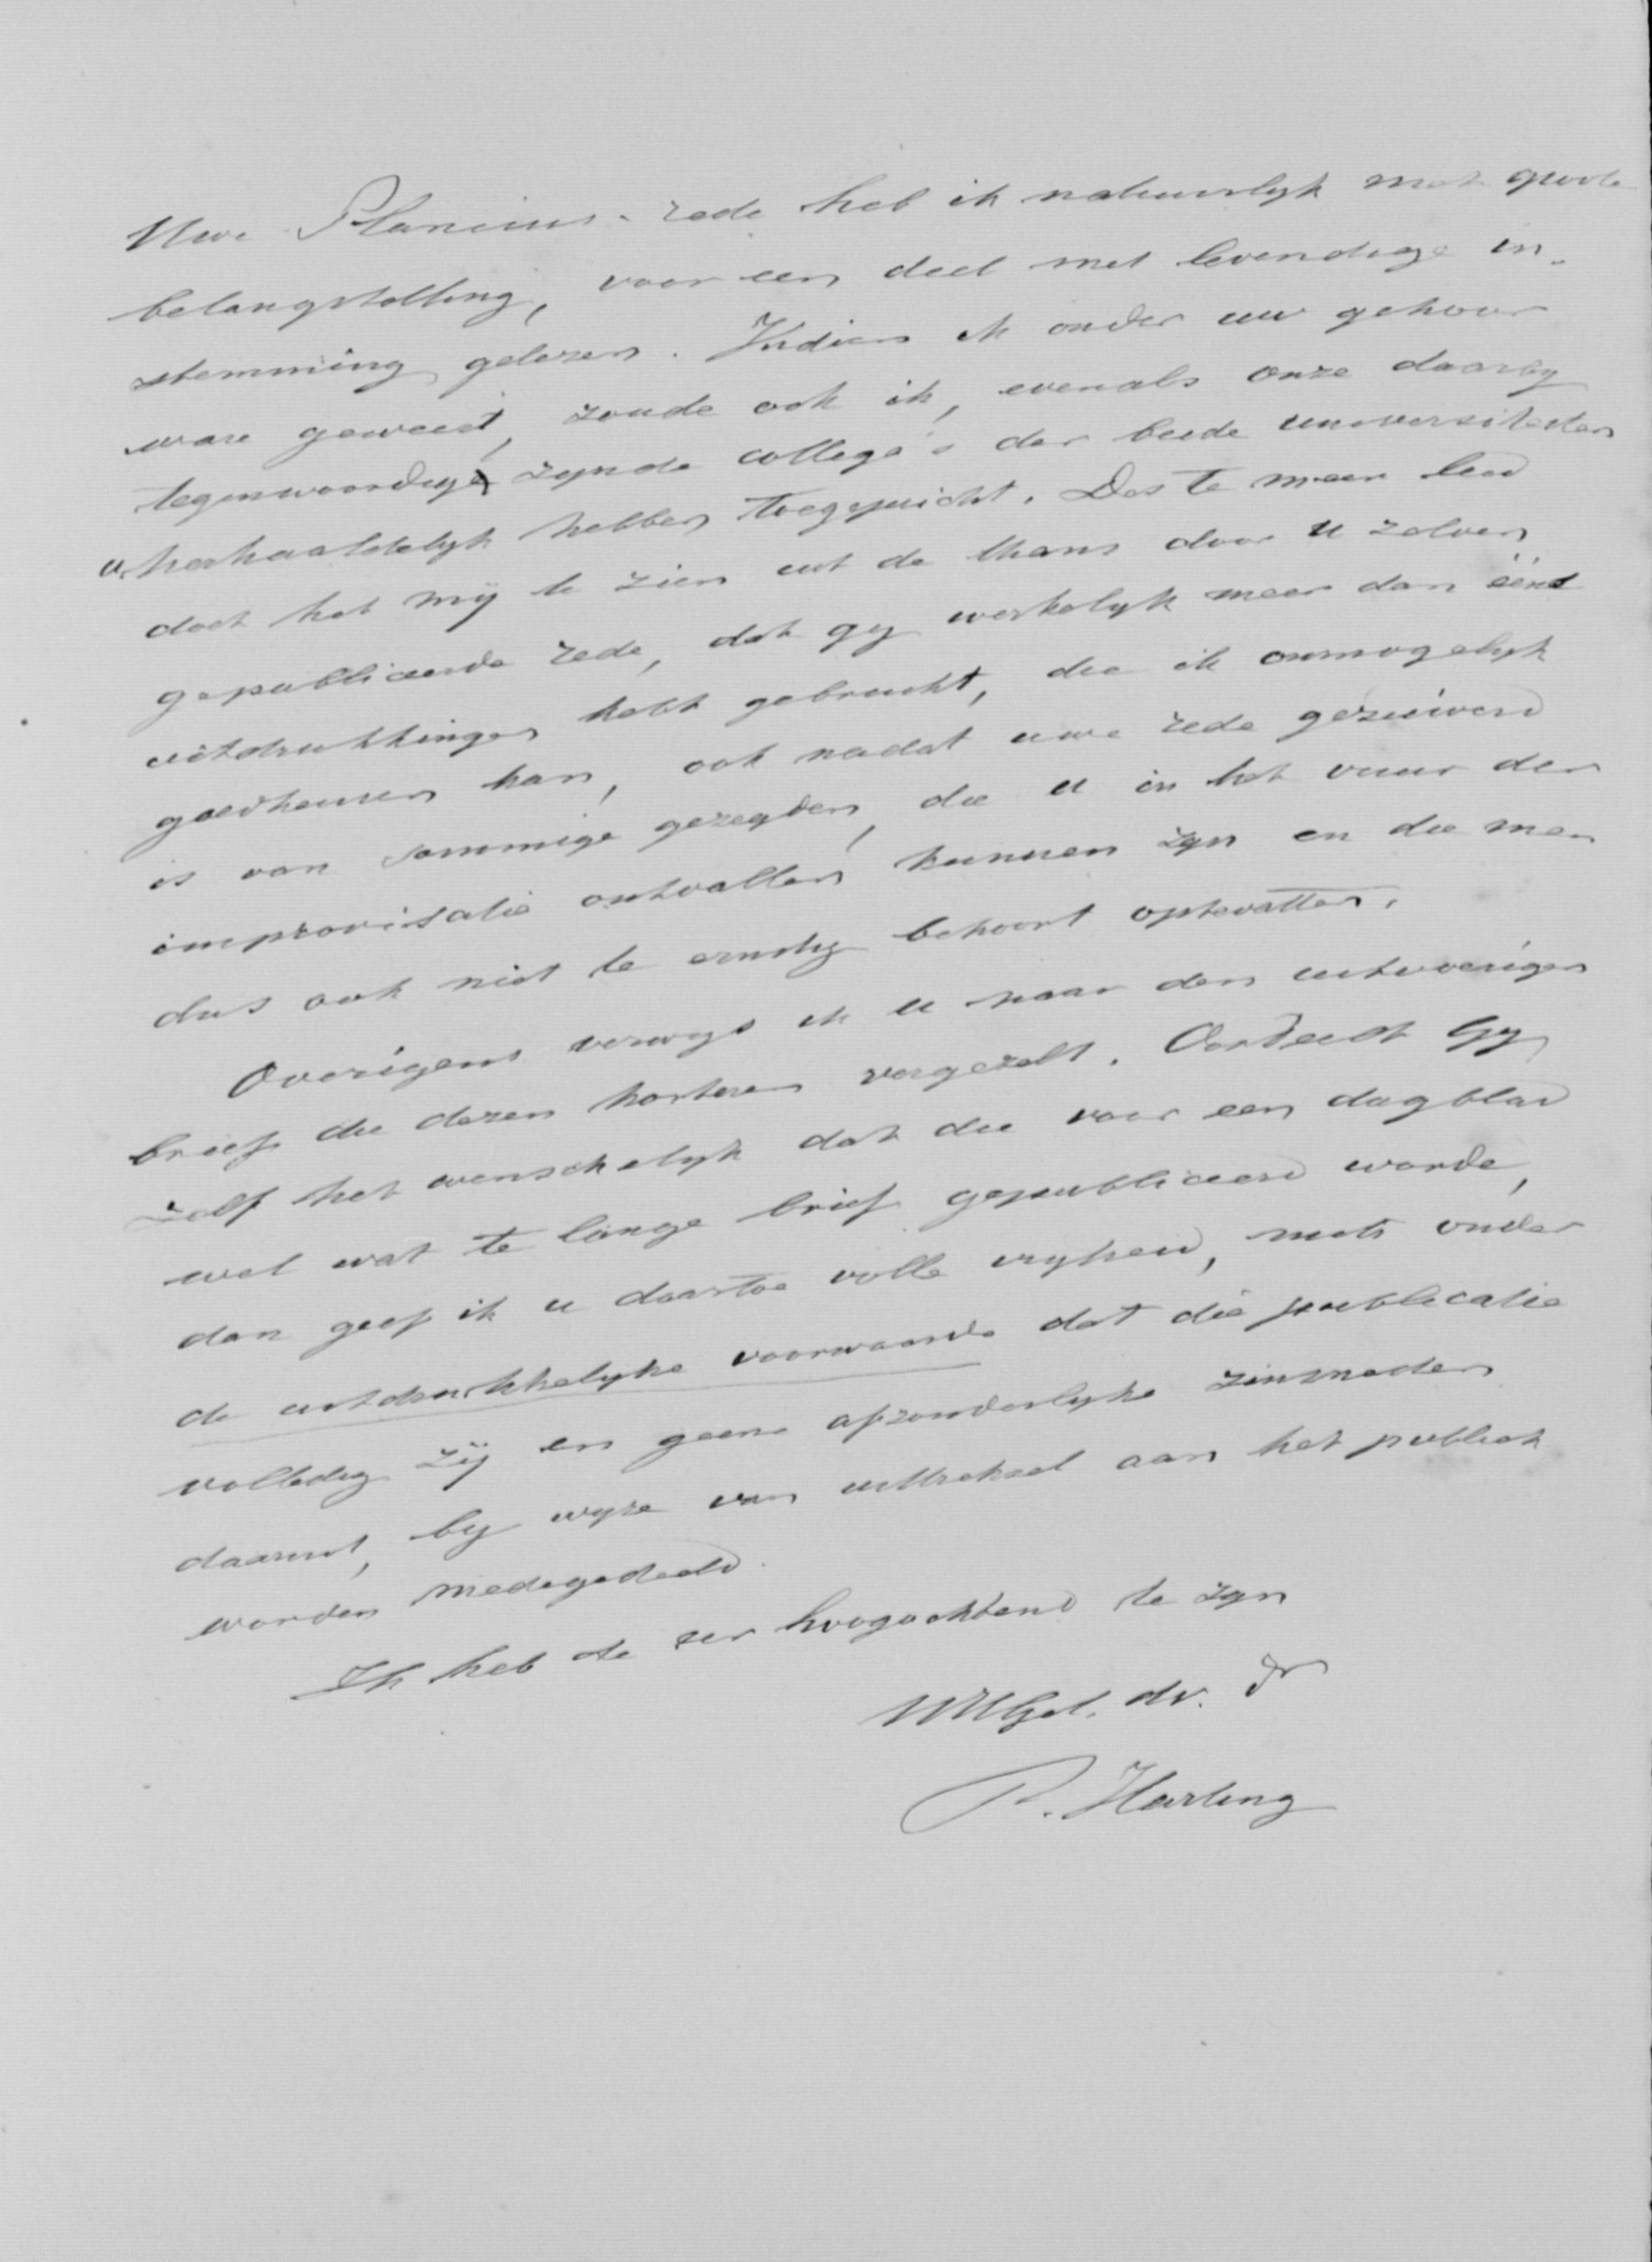 Uwe Plancius-rede heb ik natuurlyk met groote
belangstelling, voor een deel met levendige in-
stemming gelezen. Indien ik onder uw gehoor
ware geweest, zoude ook ik, evenals onze daarby
tegenwoordig zynde collega's der beide universiteiten
u herhaaldelyk hebben toegejuicht. Des te meer leed
doet het mij te zien uit de thans door u zelven
gepubliceerde rede, dat gy werkelyk meer dan ééne
uitdrukkingen hebt gebruikt, die ik onmogelyk
goedkeuren kan, ook nadat uwe rede gezuiverd
is van sommige gezegden, die u in het vuur der
improvisatie ontvallen kunnen zyn en die men
dus ook niet te ernstig behoort optevatten.
Overigens verwys ik u naar den uitvoerigen
brief die dezen korteren vergezelt. Oordeelt Gy
zelf het wenschelyk dat die voor een dagblad
wel wat te lange brief gepubliceerd worde,
dan geef ik u daartoe volle vryheid, mits onder
de uitdrukkelyke voorwaarde dat die publicatie
volledig zij en geene afzonderlyke zinsneden
daaruit, by wyze van uittreksel aan het publiek
worden medegedeeld.
Ik heb de eer hoogachtend te zyn
UWEdGel. dv. dr
P. Harting